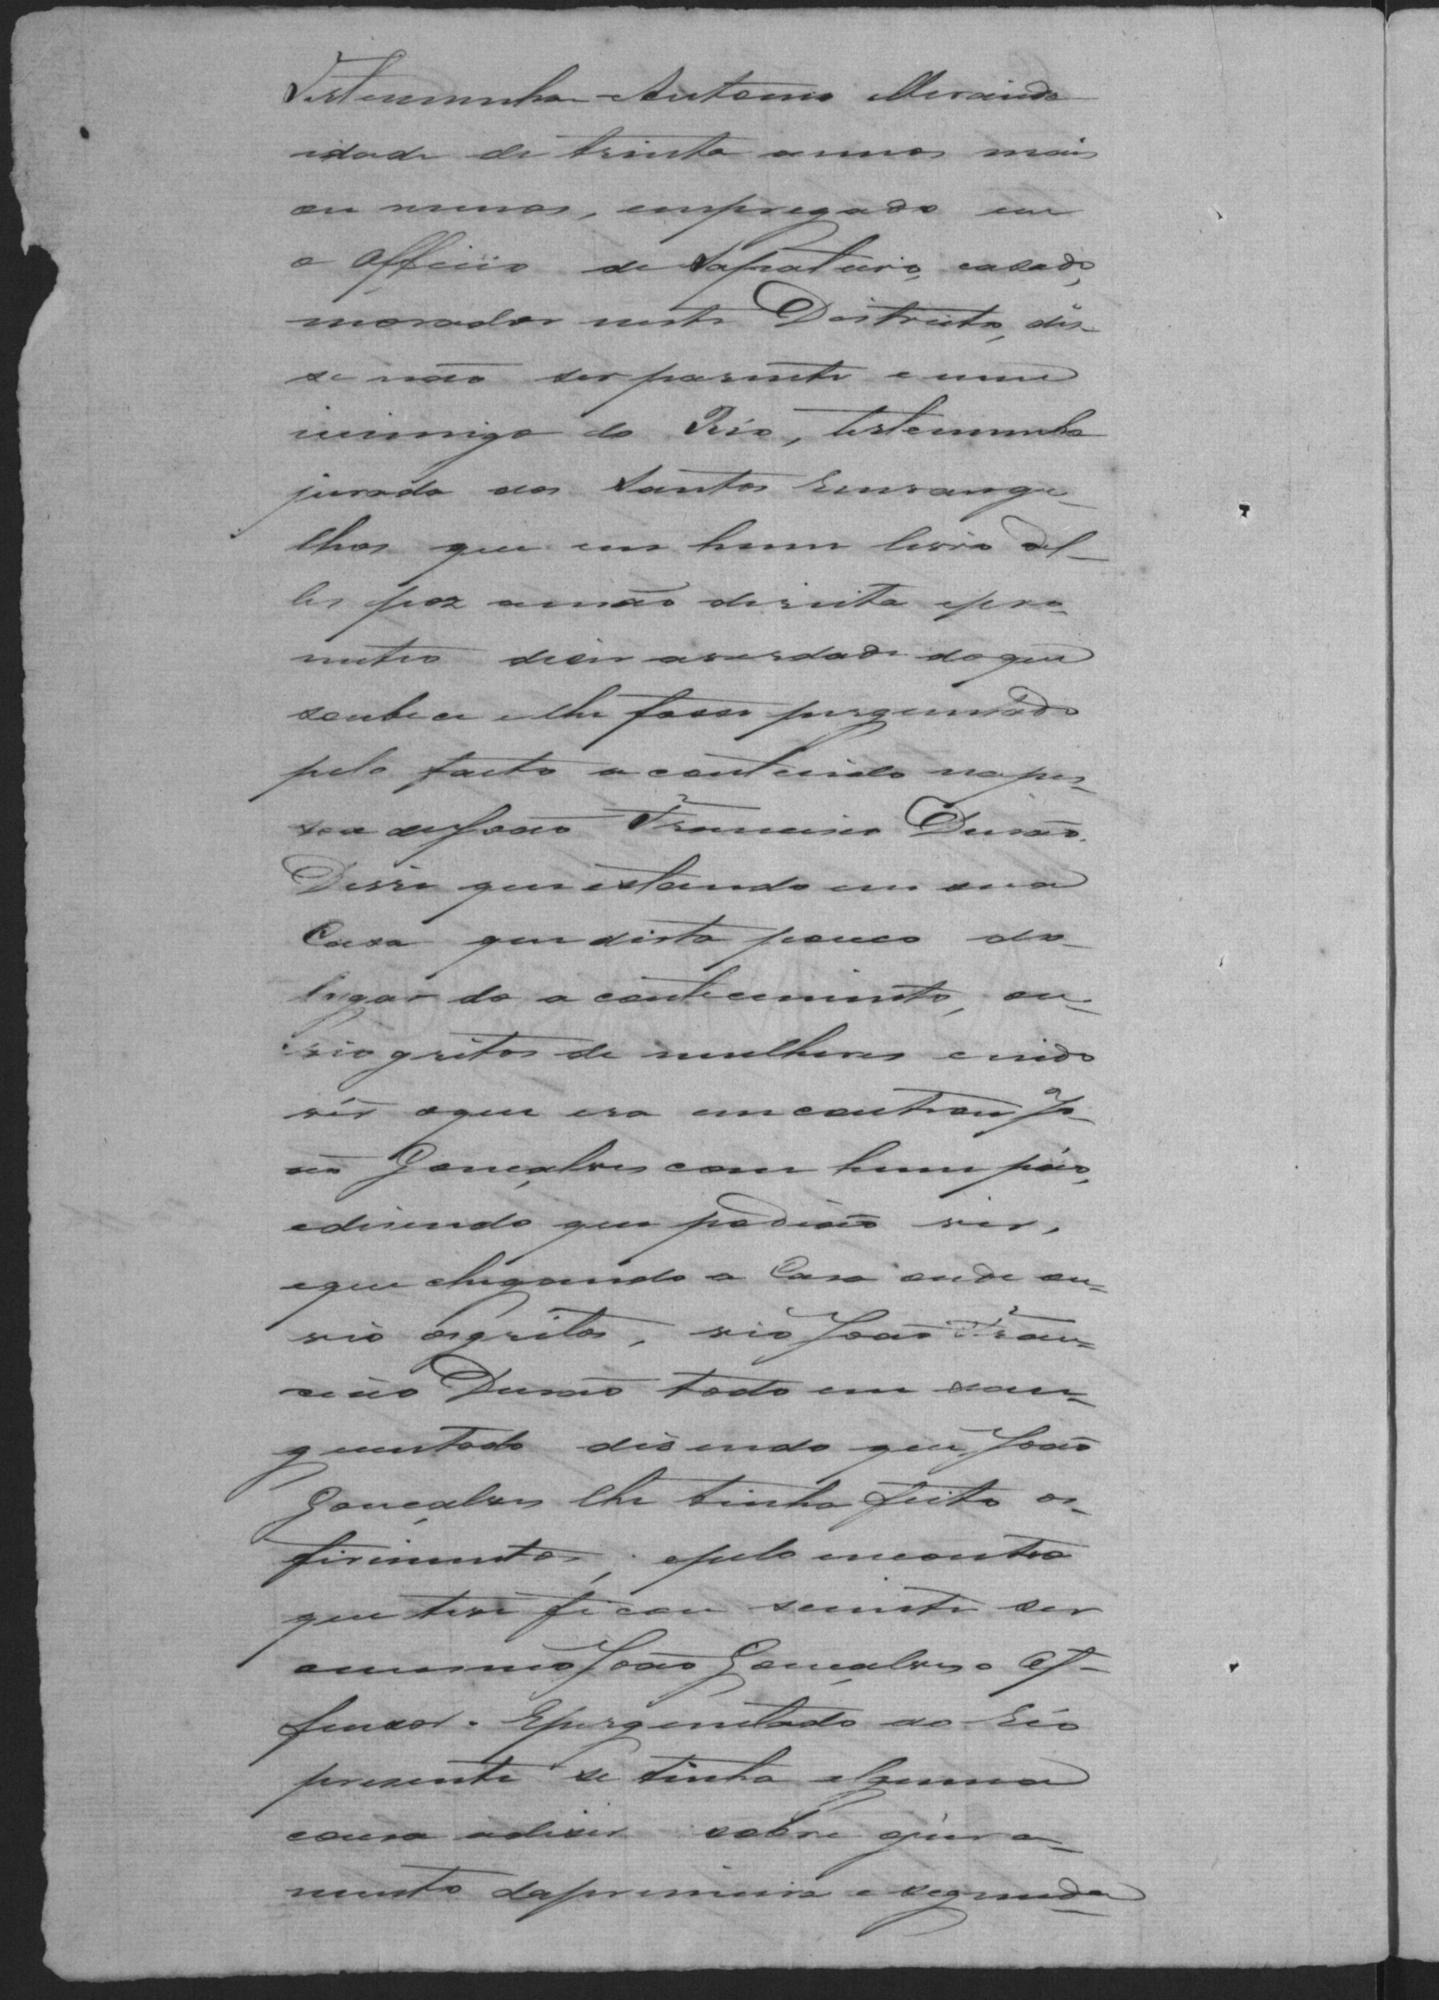 Testemunha Antonio Miranda
idade de trinta annos mais
ou menos, empregado em
o Officio de Sapateiro, casado,
morador neste Destricto, dis-
se não ser parente e nem
inimigo do Réo, testemunha
jurada aos Santos Envange-
lhos que em hum livro del-
les poz a mão direita e pro-
meteo diser a verdade do que
soubece e lhe fosse preguntado
pelo facto acontecido na pes-
soa de João Francisco Durão.
Disse que estando em sua
Casa que dista pouco do
lugar do acontecimento, ou-
vio gritos de mulheres e indo
vêr o que era encontrou Jo-
ão Gonçalves com hum páo,
e disendo que podião vir,
e que chegando a Casa onde ou-
vio os gritos, vio João Fran-
cisco Durão todo em san-
guentado disendo que João
Gonçalves lhe tinha feito os
firimentos, e pelo encontro
que teve ficou sciente ser
o mesmo João Gonçalves o Of-
fensor. E preguntado ao Réo
presente se tinha alguma
cousa a diser sobre o jura-
mento da primeira e segunda